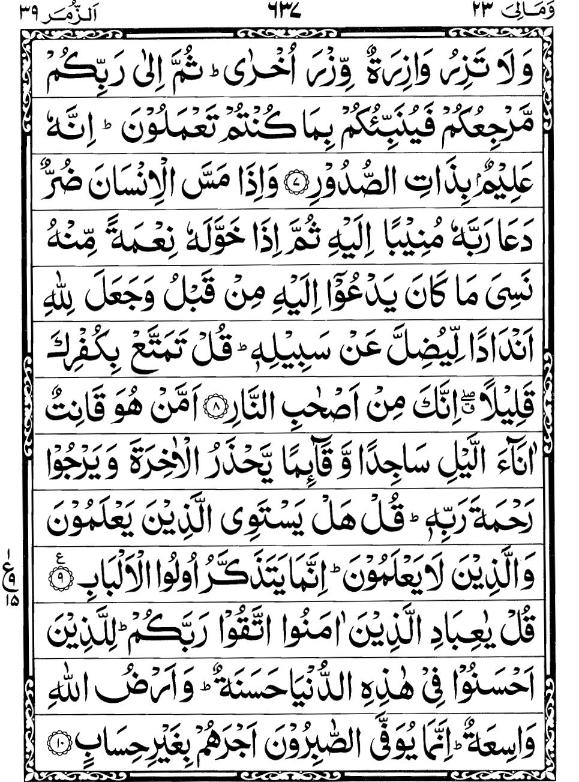 وَمَالِیَ ٢٣ ٦٣٧ اَلزُّمَر ٣٩
وَلَا تَزِرُ وَازِرَةٌ وِّزْرَ اُخْرٰى ؕ ثُمَّ اِلٰى رَبِّكُمْ
مَّرْجِعُكُمْ فَيُنَبِّئُكُمْ بِمَا كُنْتُمْ تَعْمَلُوْنَ ؕ اِنَّهٗ
عَلِيْمٌۢ بِذَاتِ الصُّدُوْرِ ﴿٧﴾ وَاِذَا مَسَّ الْاِنْسَانَ ضُرٌّ
دَعَا رَبَّهٗ مُنِيْبًا اِلَيْهِ ثُمَّ اِذَا خَوَّلَهٗ نِعْمَةً مِّنْهُ
نَسِىَ مَا كَانَ يَدْعُوْۤا اِلَيْهِ مِنْ قَبْلُ وَجَعَلَ لِلّٰهِ
اَنْدَادًا لِّيُضِلَّ عَنْ سَبِيْلِهٖ ؕ قُلْ تَمَتَّعْ بِكُفْرِكَ
قَلِيْلًا ۖ اِنَّكَ مِنْ اَصْحٰبِ النَّارِ ﴿٨﴾ اَمَّنْ هُوَ قَانِتٌ
اٰنَآءَ الَّيْلِ سَاجِدًا وَّقَآئِمًا يَّحْذَرُ الْاٰخِرَةَ وَيَرْجُوْا
رَحْمَةَ رَبِّهٖ ؕ قُلْ هَلْ يَسْتَوِى الَّذِيْنَ يَعْلَمُوْنَ
وَالَّذِيْنَ لَا يَعْلَمُوْنَ ؕ اِنَّمَا يَتَذَكَّرُ اُولُوا الْاَلْبَابِ ﴿٩﴾ ع
١ ع ٩ ١٥
قُلْ يٰعِبَادِ الَّذِيْنَ اٰمَنُوا اتَّقُوْا رَبَّكُمْ ؕ لِلَّذِيْنَ
اَحْسَنُوْا فِىْ هٰذِهِ الدُّنْيَا حَسَنَةٌ ؕ وَاَرْضُ اللّٰهِ
وَاسِعَةٌ ؕ اِنَّمَا يُوَفَّى الصّٰبِرُوْنَ اَجْرَهُمْ بِغَيْرِ حِسَابٍ ﴿١٠﴾